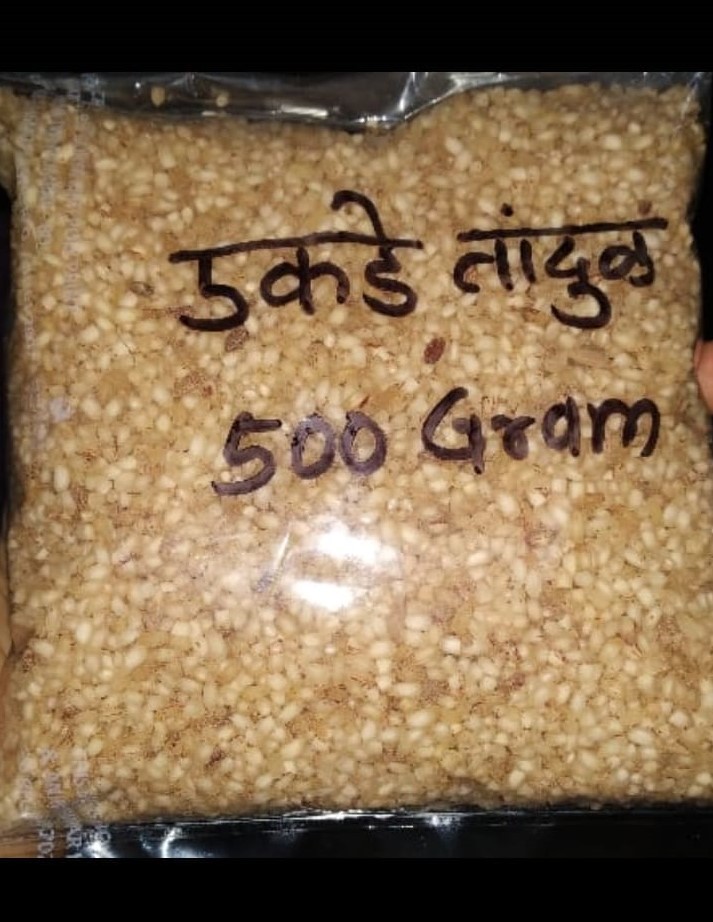 उकडे तांदुळ
500 Gram